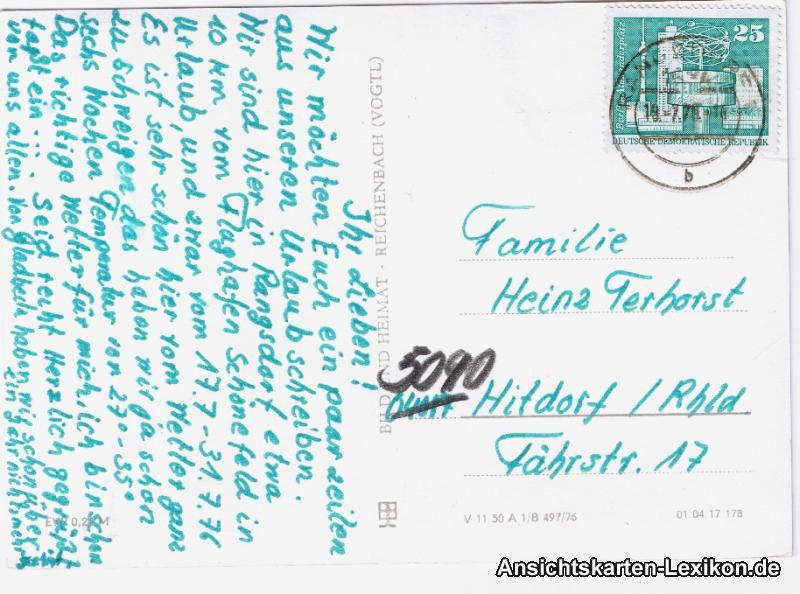 Ihr Lieben!
Wir möchten Euch ein paar Zeilen
aus unseren Urlaub schreiben.
Wir sind hier in Rangsdorf etwa
10 km vom Flughafen Schönefeld in
Urlaub, und zwar vom 17.7-31.7.76
Es ist sehr schön hier vom Wetter ganz
zu schweigen das haben wir ja schon
sechs Wochen Temperatur von 27°-35°
Das richtige Wetter für mich, ich bin schon
Seid recht Herzlich gegrüßt
von uns allen. Von Gladbach haben wir schon über
ein Jahr nichts mehr
BILD UND HEIMAT · REICHENBACH (VOGTL)
25
Berlin, Alexanderplatz
DEUTSCHE DEMOKRATISCHE REPUBLIK
b
Familie
Heinz Terhorst
5090
Hitdorf / Rhld
Fährstr. 17
V 11 50 A 1/B 497/76
01 04 17 178
Ansichtskarten-Lexikon.de